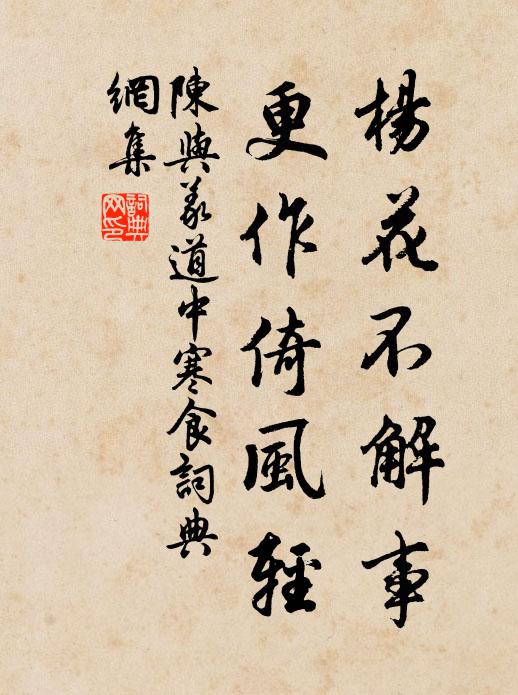 楊花不解事
更作倚風輕
陳與義道中寒食詞典
網集
詞典網印